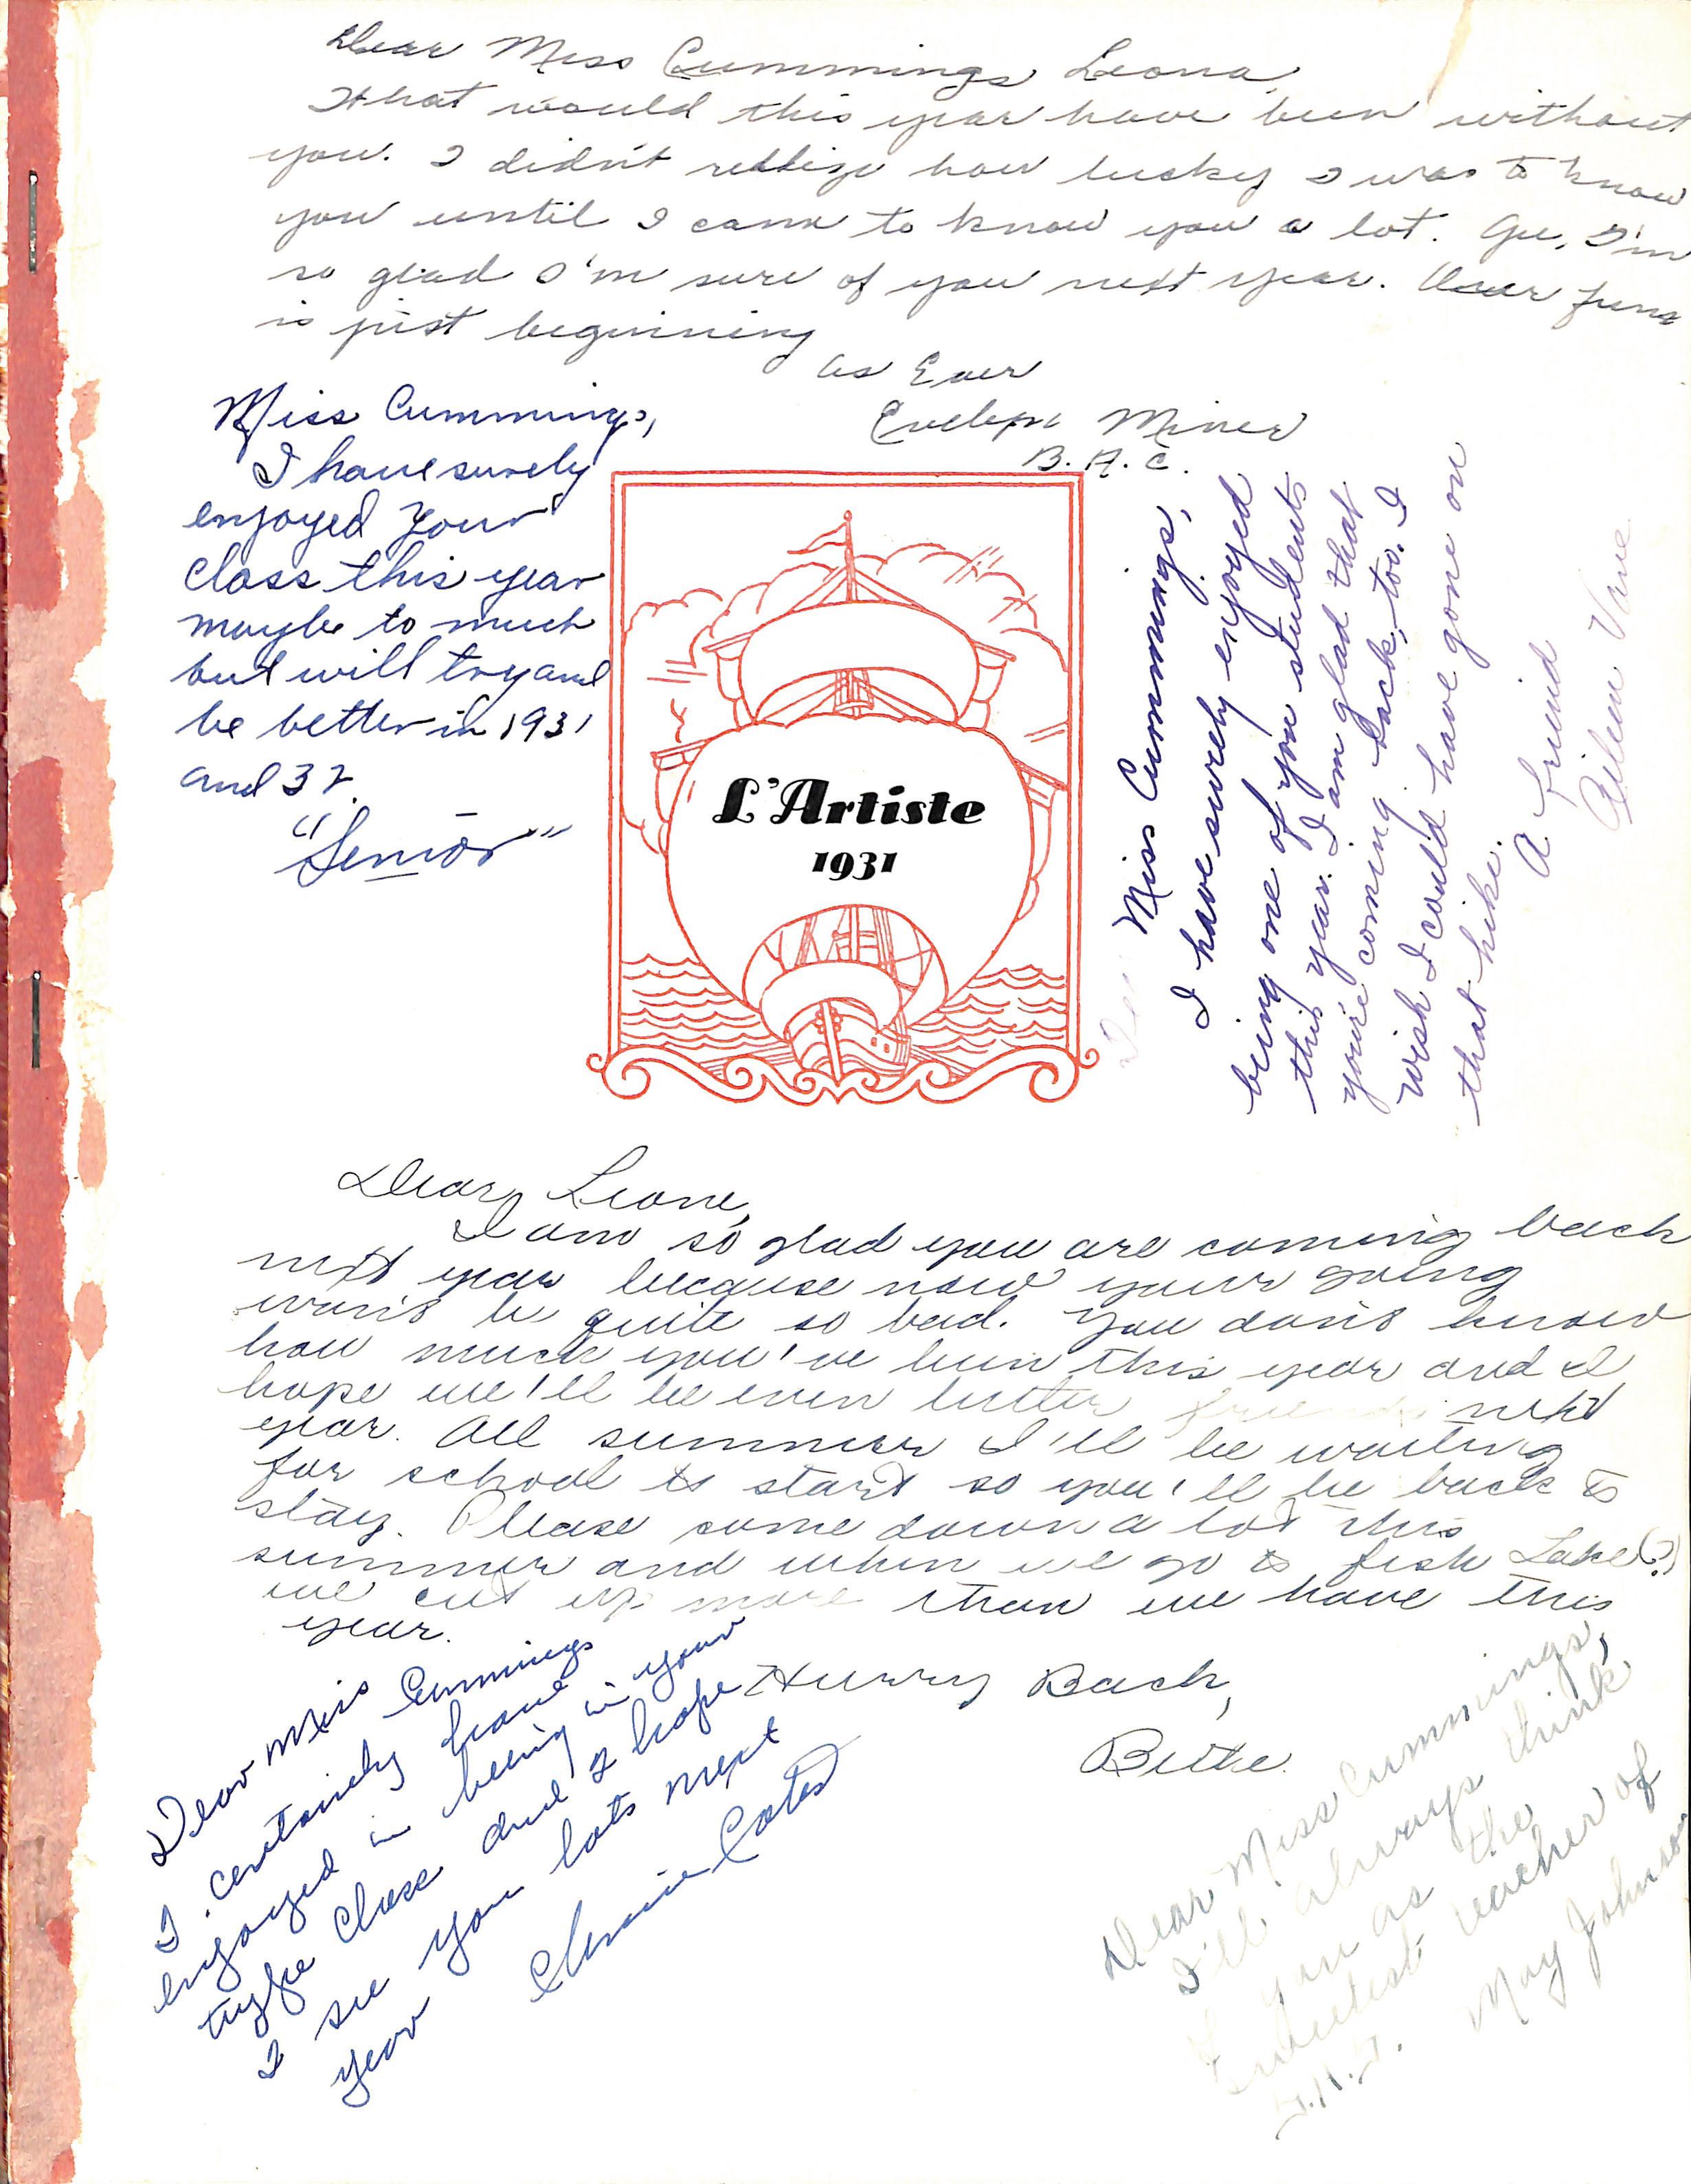 Dear Miss Cummings Leona,
What would this year have been without
you. I didn't realize how lucky I was to know
you until I came to know you a lot. Gee, I'm
so glad I'm sure of you next year. Our fun
is just beginning
As Ever
Evelyn Miner
B.A.C.
Miss Cummings,
I have surely
enjoyed your
class this year
maybe to much
but will try and
be better in 1931
and 32.
"Senior"
L'Artiste
1931
Miss Cummings,
I have surely enjoyed
being one of you students
this year. I am glad that
you're coming back, too. I
wish I could have gone on
that hike.
A friend
Aileen Vane
Dear Leone,
I am so glad you are coming back
next year because now your going
won't be quite so bad. You don't know
how much you've been this year and I
hope we'll be even better friends next
year. All summer I'll be waiting
for school to start so you'll be back to
stay. Please come down a lot this
summer and when we go to fish Lake(?)
we cut up more than we have this
year.
Hurry Back,
Bette.
Dear Miss Cummings
I certainly have
enjoyed in being in your
type class and I hope
I see you lots next
year
Coates
Dear Miss Cummings,
I'll always think
of you as the
sweetest teacher of
May Johnson